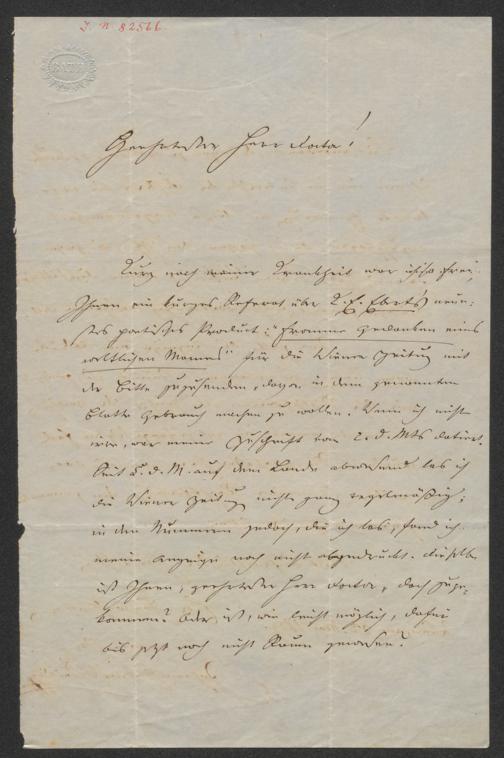 J. N. 82566
BATH
Geehrtester Herr Doctor!
Kurz nach meiner Krankheit war ich so frei,
Ihnen ein kurzes Referat über K. E. Ebert's neue-
stes poetisches Product: "Fromme Gedanken eines
weltlichen Mannes" für die Wiener Zeitung mit
der Bitte zuzusenden, davon in dem genannten
Blatte Gebrauch machen zu wollen. Wenn ich nicht
irre, war meine Zuschrift vom 2. d. Mts datirt.
Seit 5. d. M. auf dem Lande abwesend las ich
die Wiener Zeitung nicht ganz regelmäßig;
in den Nummern jedoch, die ich las, fand ich
meine Anzeige noch nicht abgedruckt. Dieselbe
ist Ihnen, geehrtester Herr Doctor, doch zuge-
kommen? Oder ist, wie leicht möglich, dafür
bis jetzt noch nicht Raum gewesen?